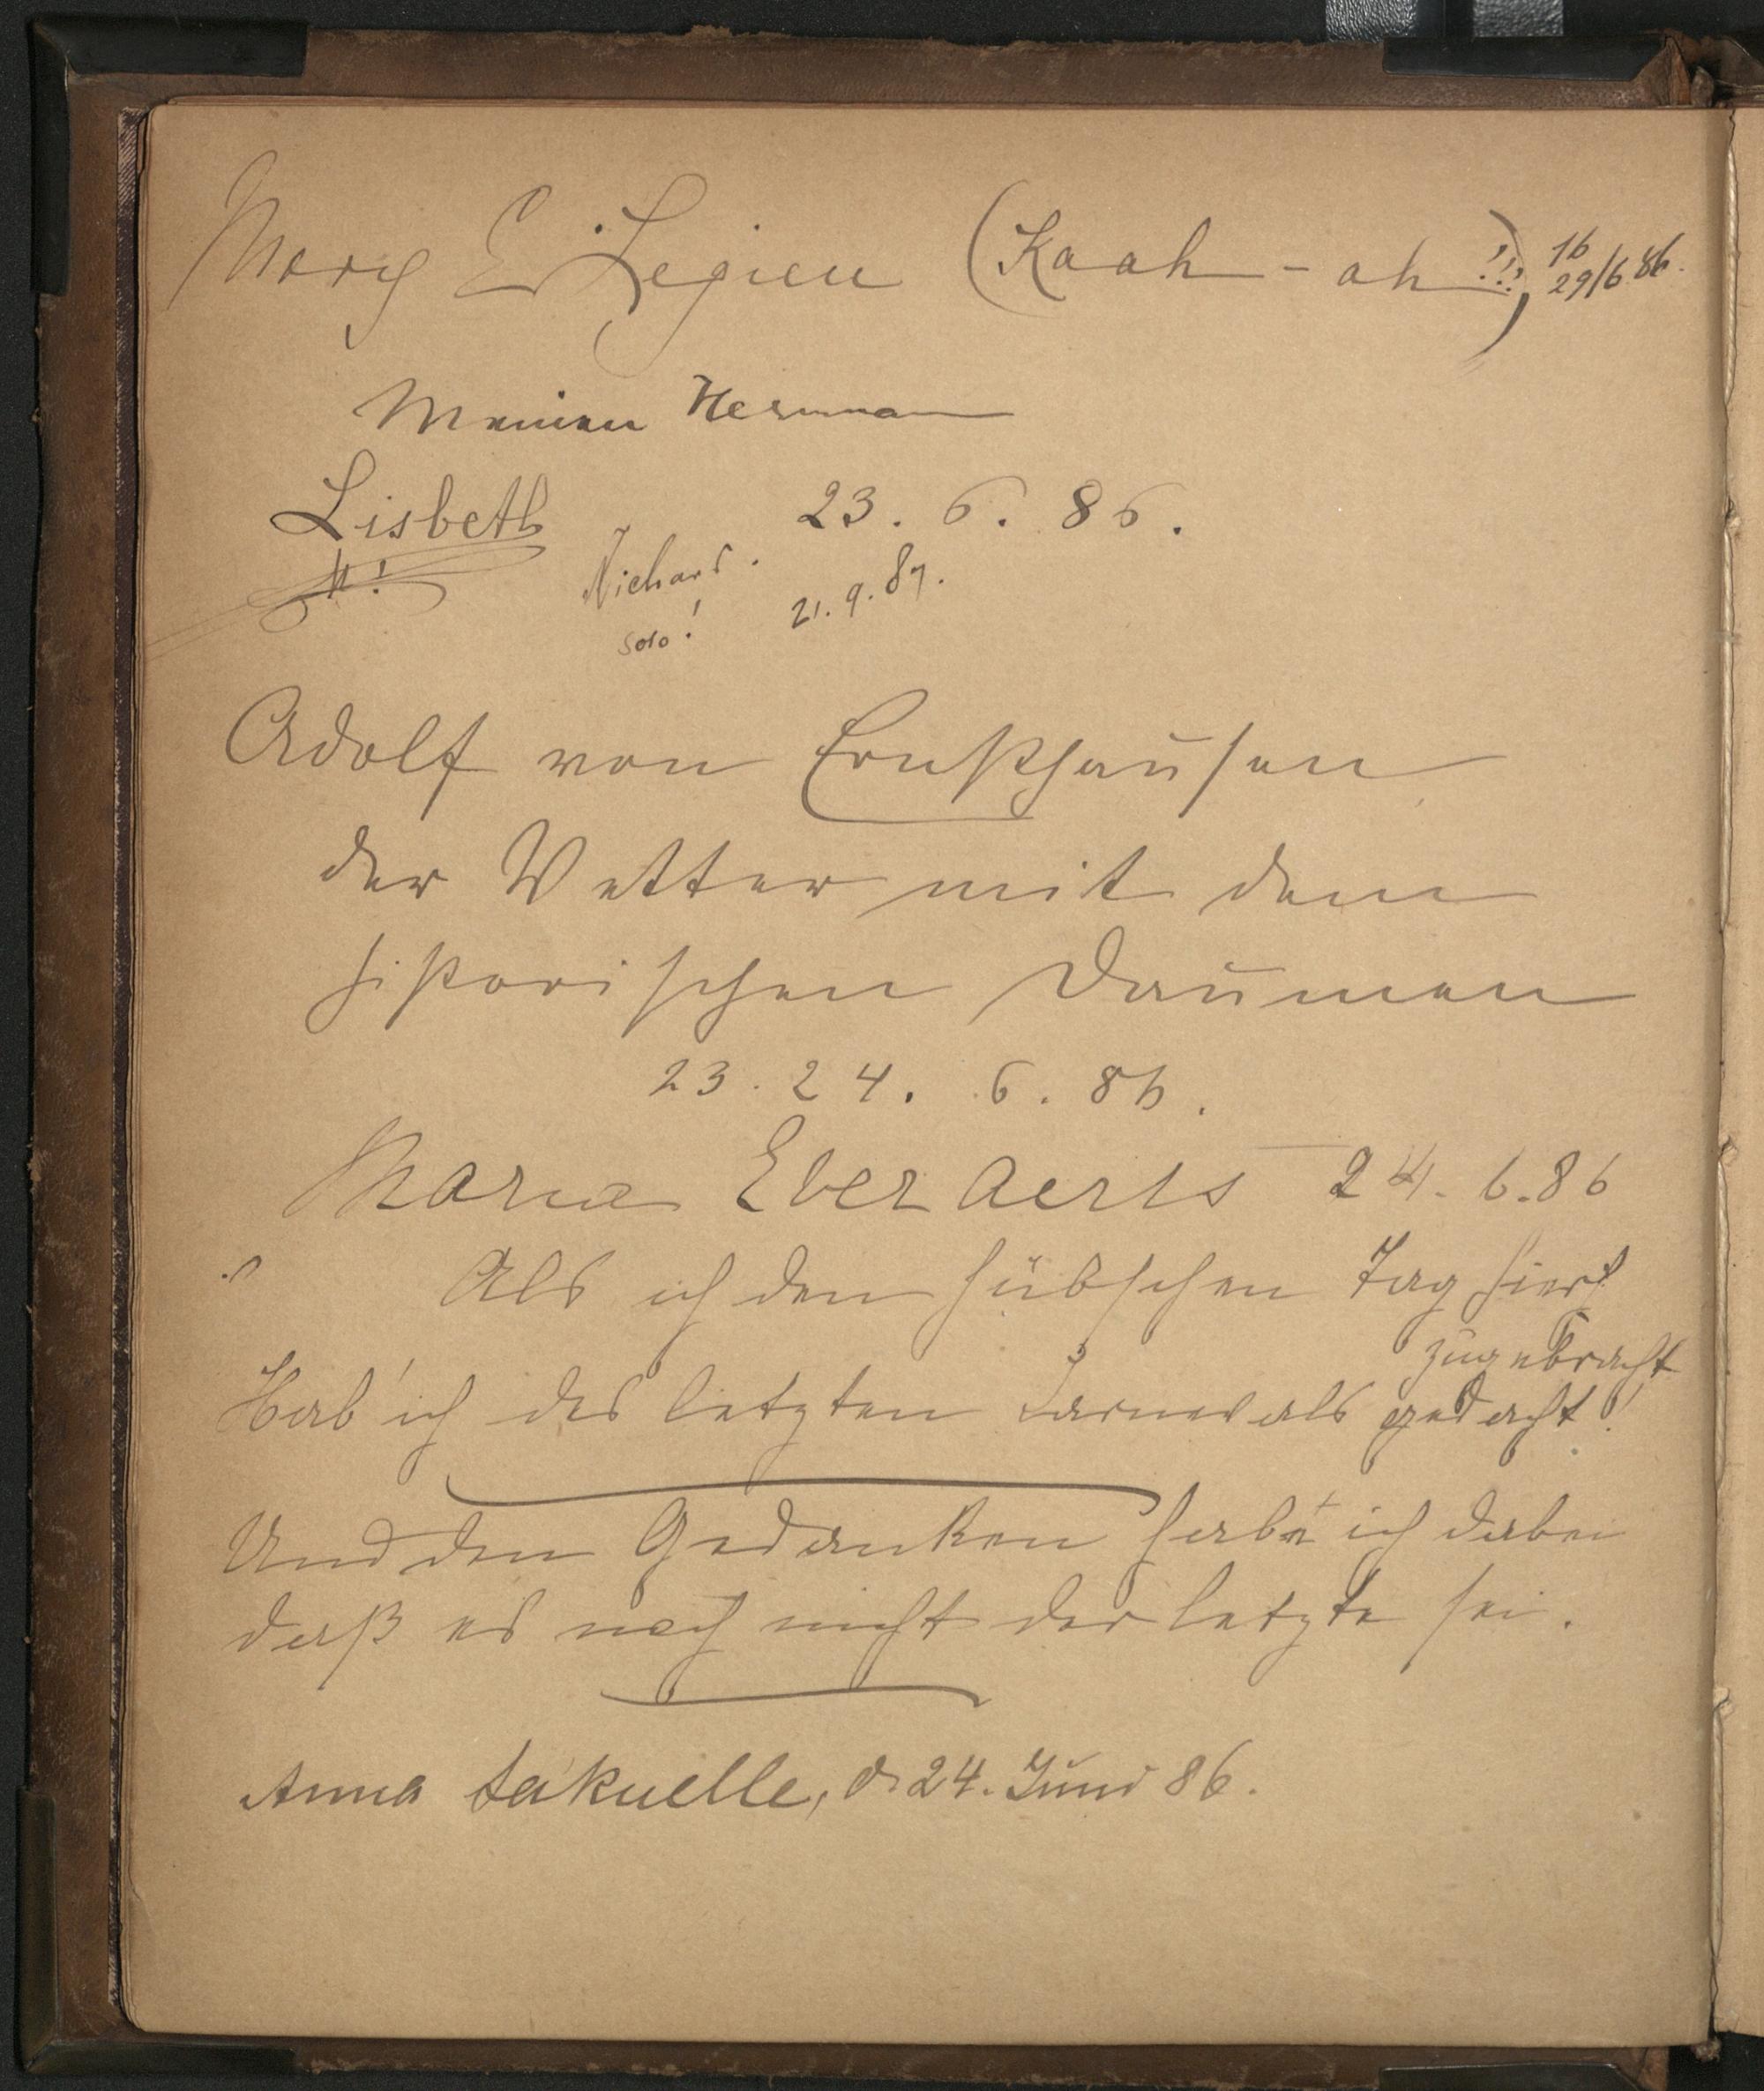 Mary E. Legien (Kaah - ah !!?) 16/29/6.86.
Hermann
Lisbeth 23. 6. 86.
Richard. 21. 9. 87.
solo!
Adolf von Ernsthausen
der Vetter mit dem
historischen Daumen
23. 24. 6. 86.
Maria Everaerts 24. 6. 86
Als ich den hübschen Tag hier
zugebracht
Hab' ich des letzten Karnevals gedacht!
Und den Gedanken habe ich dabei
daß es noch nicht der letzte sei.
Anna d. 24. Juni 86.